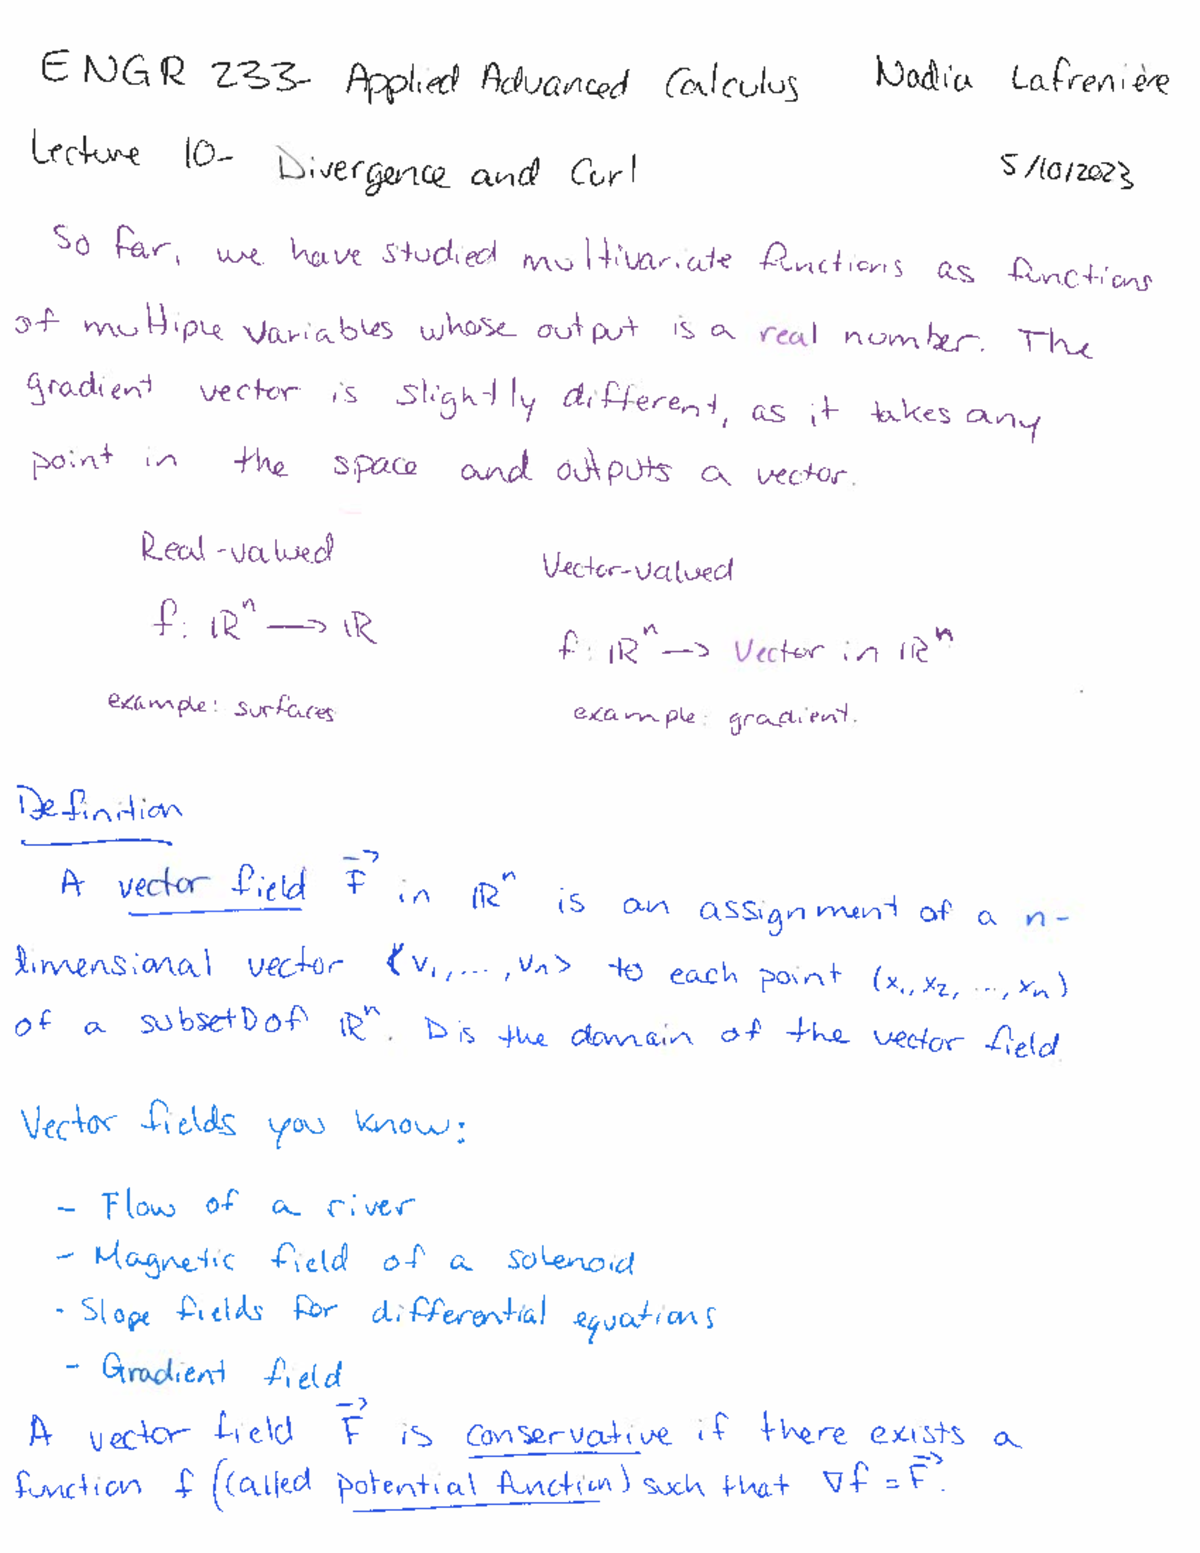 ENGR 233- Applied Advanced Calculus Nadia Lafrenière
Lecture 10- Divergence and Curl 5/10/2023
So far, we have studied multivariate functions as functions
of multiple variables whose output is a real number. The
gradient vector is slightly different, as it takes any
point in the space and outputs a vector.
Real-valued Vector-valued
f: ℝⁿ → ℝ f: ℝⁿ → Vector in ℝⁿ
example: surfaces example: gradient.
Definition
A vector field F⃗ in ℝⁿ is an assignment of a n-
dimensional vector <v₁, ..., vₙ> to each point (x₁, x₂, ..., xₙ)
of a subset D of ℝⁿ. D is the domain of the vector field
Vector fields you know:
- Flow of a river
- Magnetic field of a solenoid
- Slope fields for differential equations
- Gradient field
A vector field F⃗ is conservative if there exists a
function f (called potential function) such that ∇f = F⃗.